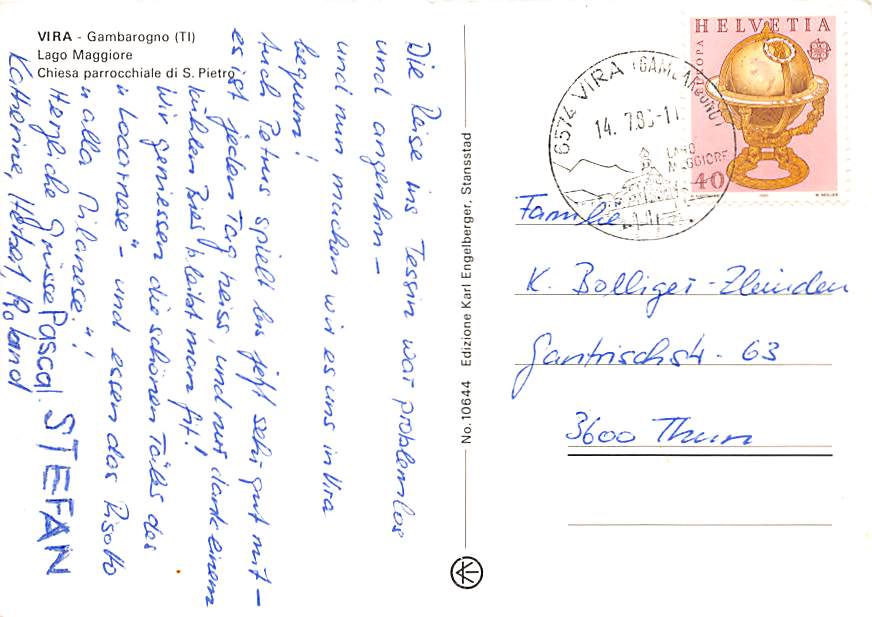 VIRA - Gambarogno (TI)
Lago Maggiore
Chiesa parrocchiale di S. Pietro
Die Reise ins Tessin war problemlos
und angenehm -
und nun machen wir es uns in Vira
bequem!
Auch Petrus spielt bis jetzt sehr gut mit -
es ist jeden Tag heiss, und nur dank einem
kühlen Bier bleibt man fit!
Wir geniessen die schönen Täler des
"Locarnese" - und essen das Risotto
"alla Milanese"!
Herzliche Grüsse Pascal STEFAN
Katherine, Herbert, Roland
No. 10644 Edizione Karl Engelberger, Stansstad
HELVETIA
EUROPA
40
6574 VIRA (GAMBAROGNO)
14. 7.86-11
LAGO
MAGGIORE
Familie
K. Bolliger-Zbinden
Gantrischstr. 63
3600 Thun